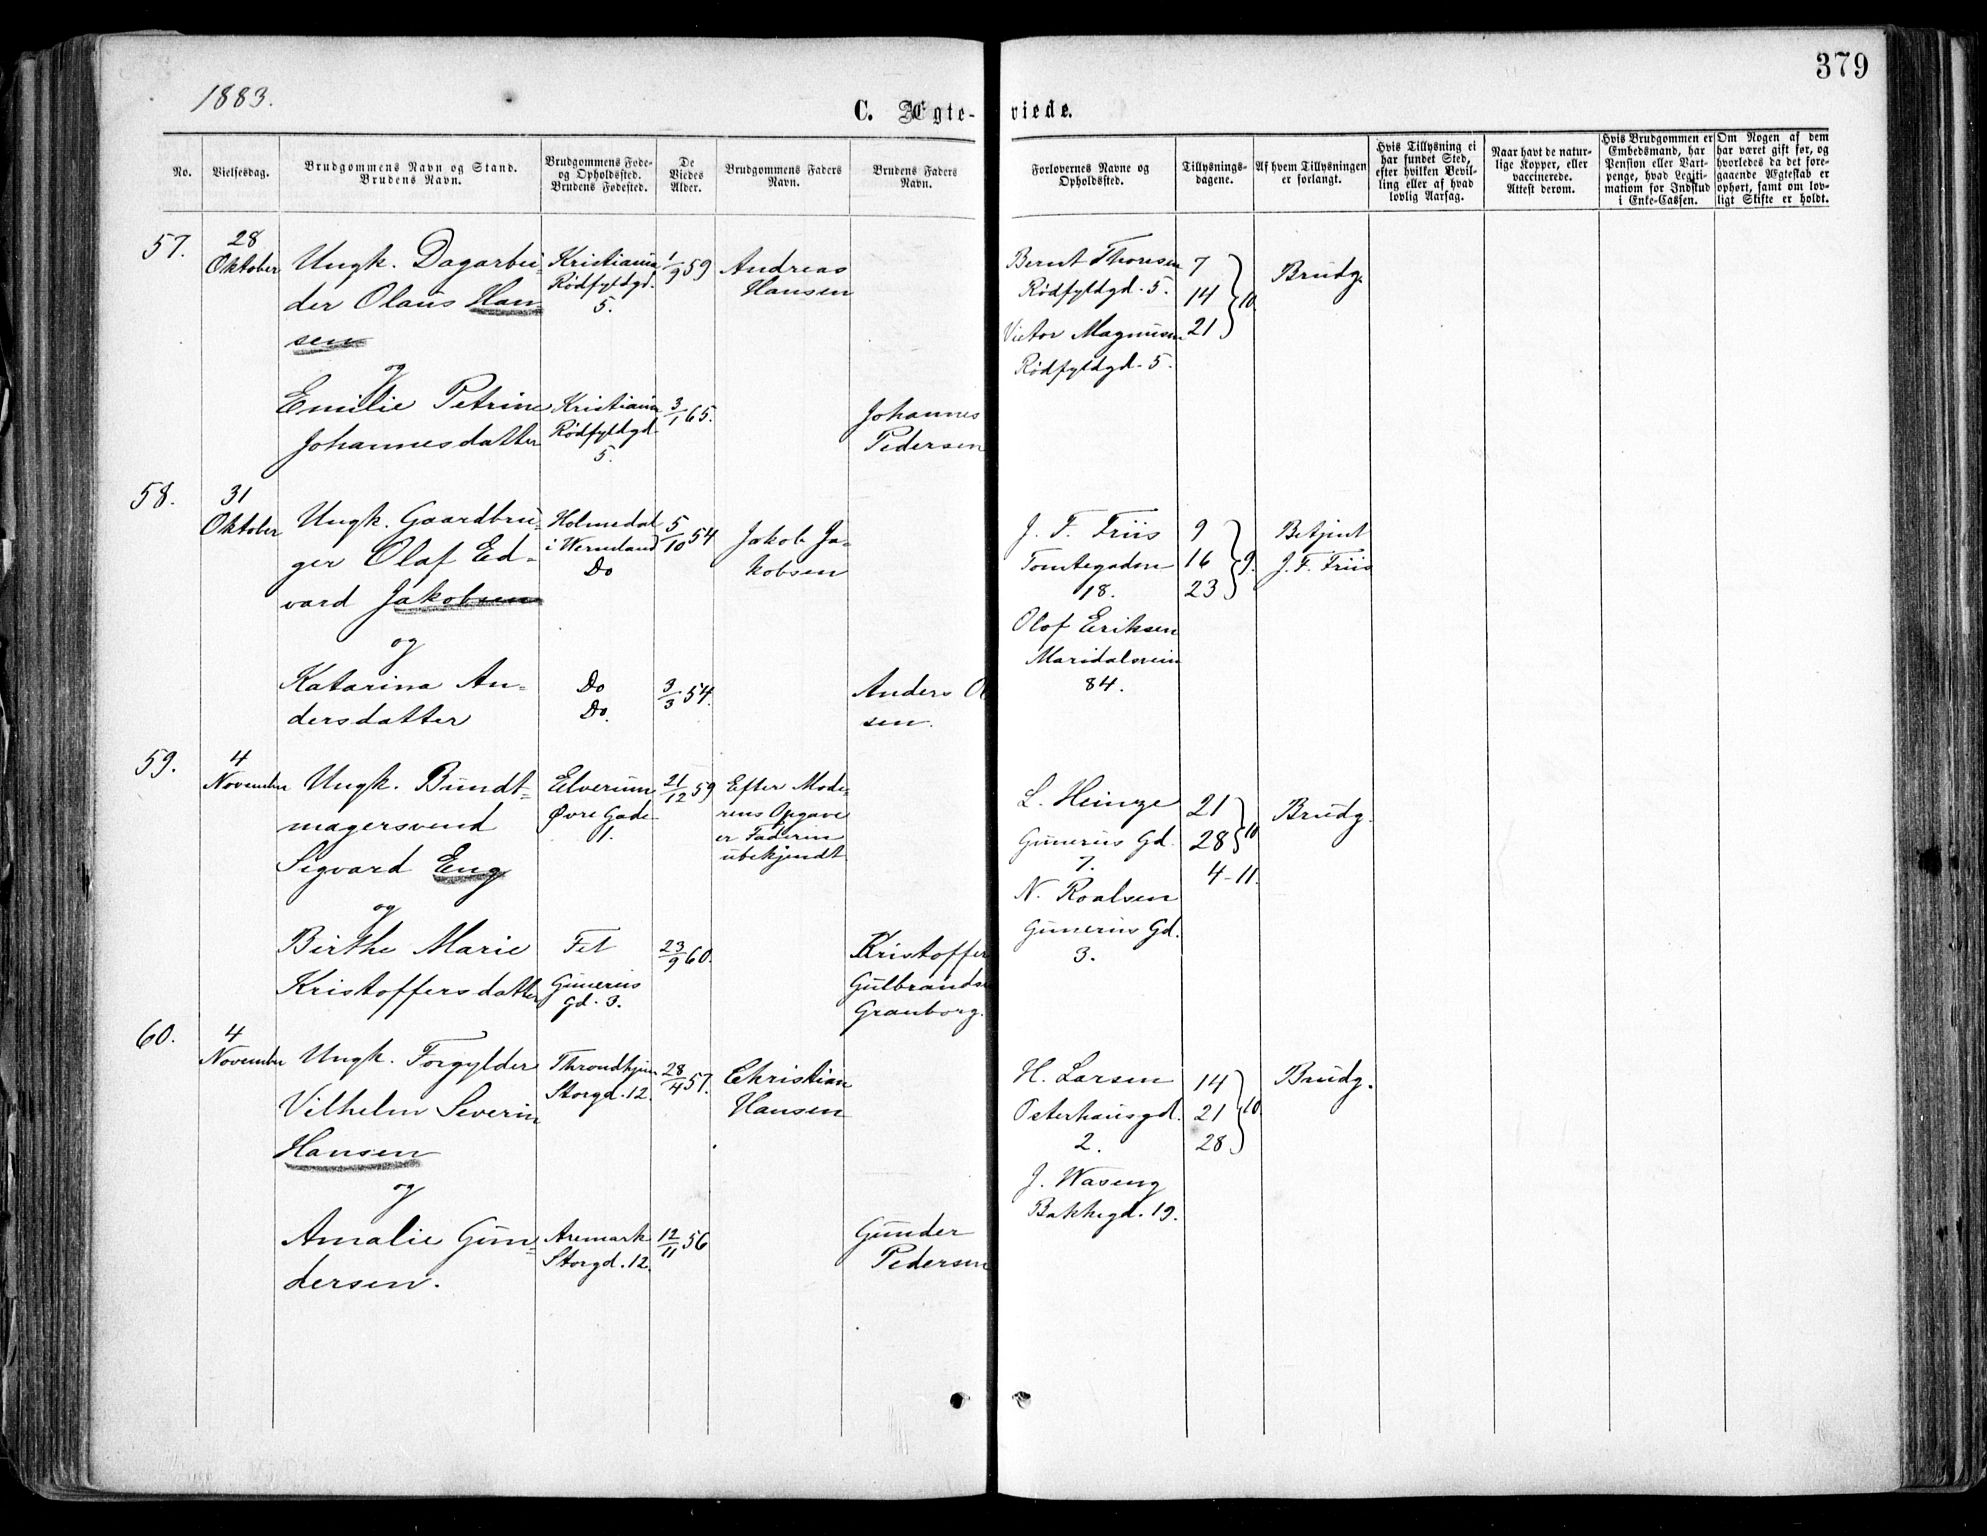 379
1883.
C. Ægte- viede.
No.
Vielsesdag.
Brudgommens Navn og Stand.
Brudens Navn.
Brudgommens Føde-
og Opholdssted.
Brudens Fødested.
De
Viedes
Alder.
Brudgommens Faders
Navn.
Brudens Faders
Navn.
Forlovernes Navne og
Opholdssted.
Tillysnings-
dagene.
Af hvem Tillysningen
er forlangt.
Hvis Tillysning ei
har fundet Sted,
efter hvilken Bevil-
ling eller af hvad
lovlig Aarsag.
Naar havt de natur-
lige Kopper, eller
vaccinerede.
Attest derom.
Hvis Brudgommen er
Embedsmand, har
Pension eller Vart-
penge, hvad Legiti-
mation for Indskud
i Enke-Cassen.
Om Nogen af dem
har været gift før, og
hvorledes da det fore-
gaaende Ægteskab er
ophørt, samt om lov-
ligt Skifte er holdt.
57.
28
Oktober
Ungk. Dagarbei-
der Olaus Han-
sen
og
Emilie Petrine
Johannesdatter
Kristiania
Rødfyldgd.
5.
Kristiania
Rødfyldgd.
5.
1/9 59
3/1 65.
Andreas
Hansen
Johannes
Pedersen
Bernt Thoresen
Rødfyldgd. 5.
Victor Magnusen
Rødfyldgd. 5.
7
14
21
10.
Brudg.
58.
31
Oktober
Ungk. Gaardbru-
ger Olaf Ed-
vard Jakobsen
og
Katarina An-
dersdatter
Holmedal
i Wermland
Do
Do
Do.
5/10 54
3/3 54.
Jakob Ja-
kobsen
Anders Ol
sen.
J. F. Friis
Tomtegaden
18.
Olof Eriksen
Maridalsvein
84.
9
16
23
9.
Betjent
J. F. Friis
59.
4
November
Ungk. Bundt-
magersvend
Sigvard Eng
og
Birthe Marie
Kristoffersdatter
Elverum
Øvre Gade
1.
Fet
Gunerius
Gd. 3.
21/12 59
23/9 60.
Efter Mode-
rens Opgave
er Faderen
ubekjendt
Kristoffer
Gulbrandsen
Granborg.
L. Heinze
Gunerius Gd.
7.
N. Roalsen
Gunerius Gd.
3.
21
28
10
4-11.
Brudg.
60.
4
November
Ungk. Forgylder
Vilhelm Severin
Hansen
og
Amalie Gun-
dersen.
Throndhjem
Storgd. 12.
Aremark
Storgd. 12.
28/4 57.
12/11 56
Christian
Hansen
Gunder
Pedersen
H. Larsen
Osterhausgd.
2.
J. Waseng
Bakkegd. 19.
14
21
28
10.
Brudg.